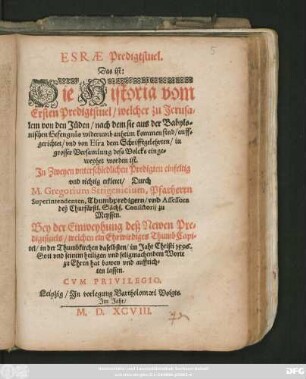 ESRÆ Predigtstuel.
Das ist:
Die Historia vom
Ersten Predigtstuel / welcher zu Jerusa-
lem von den Jüden / nach dem sie aus der Babylo-
nischen Gefengnüs widerumb anheim kommen sind / auff-
gerichtet / und von Esra dem Schrifftgelehrten / in
grosser Versamlung deß Volcks einge-
weyhet worden ist.
In Zweyen unterschiedlichen Predigten einfeltig
und richtig erkleret / Durch
M. Gregorium Strigenicium, Pfarrherrn
Superintendenten, Thumbpredigern / und Assessorn
deß Churfürstl. Sächs. Consistorij zu
Meyssen.
Bey der Einweyhung deß Newen Pre-
digtstuels / welchen ein Ehrwirdiges Thumb Capi-
tel / in der Thumbkirchen daselbsten / im Jahr Christi
Gott und seinem heiligen und seligmachendem Worte
zu Ehren hat bawen und auffrich-
ten lassen.
CVM PRIVILEGIO.
Leipzig / In vorlegung Bartholomæi Voigts
Im Jahr /
M. D. XCVIII.